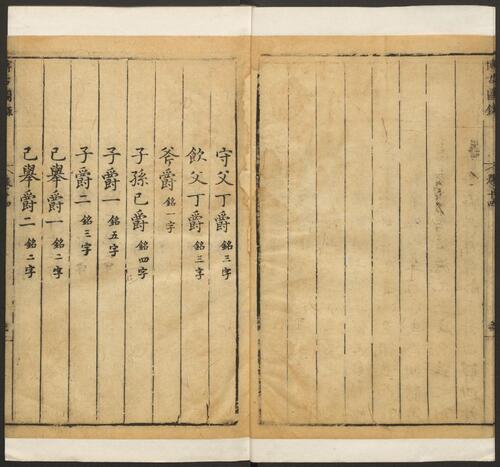 守父丁爵 銘三字
飲父丁爵 銘三字
斧爵 銘一字
子孫己爵 銘四字
子爵一 銘五字
子爵二 銘三字
己舉爵一 銘二字
己舉爵二 銘二字